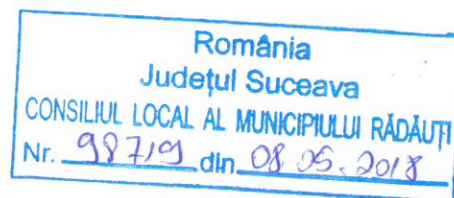 România
Județul Suceava
CONSILIUL LOCAL AL MUNICIPIULUI RĂDĂUȚI
Nr. 987/9 din 08.05.2018